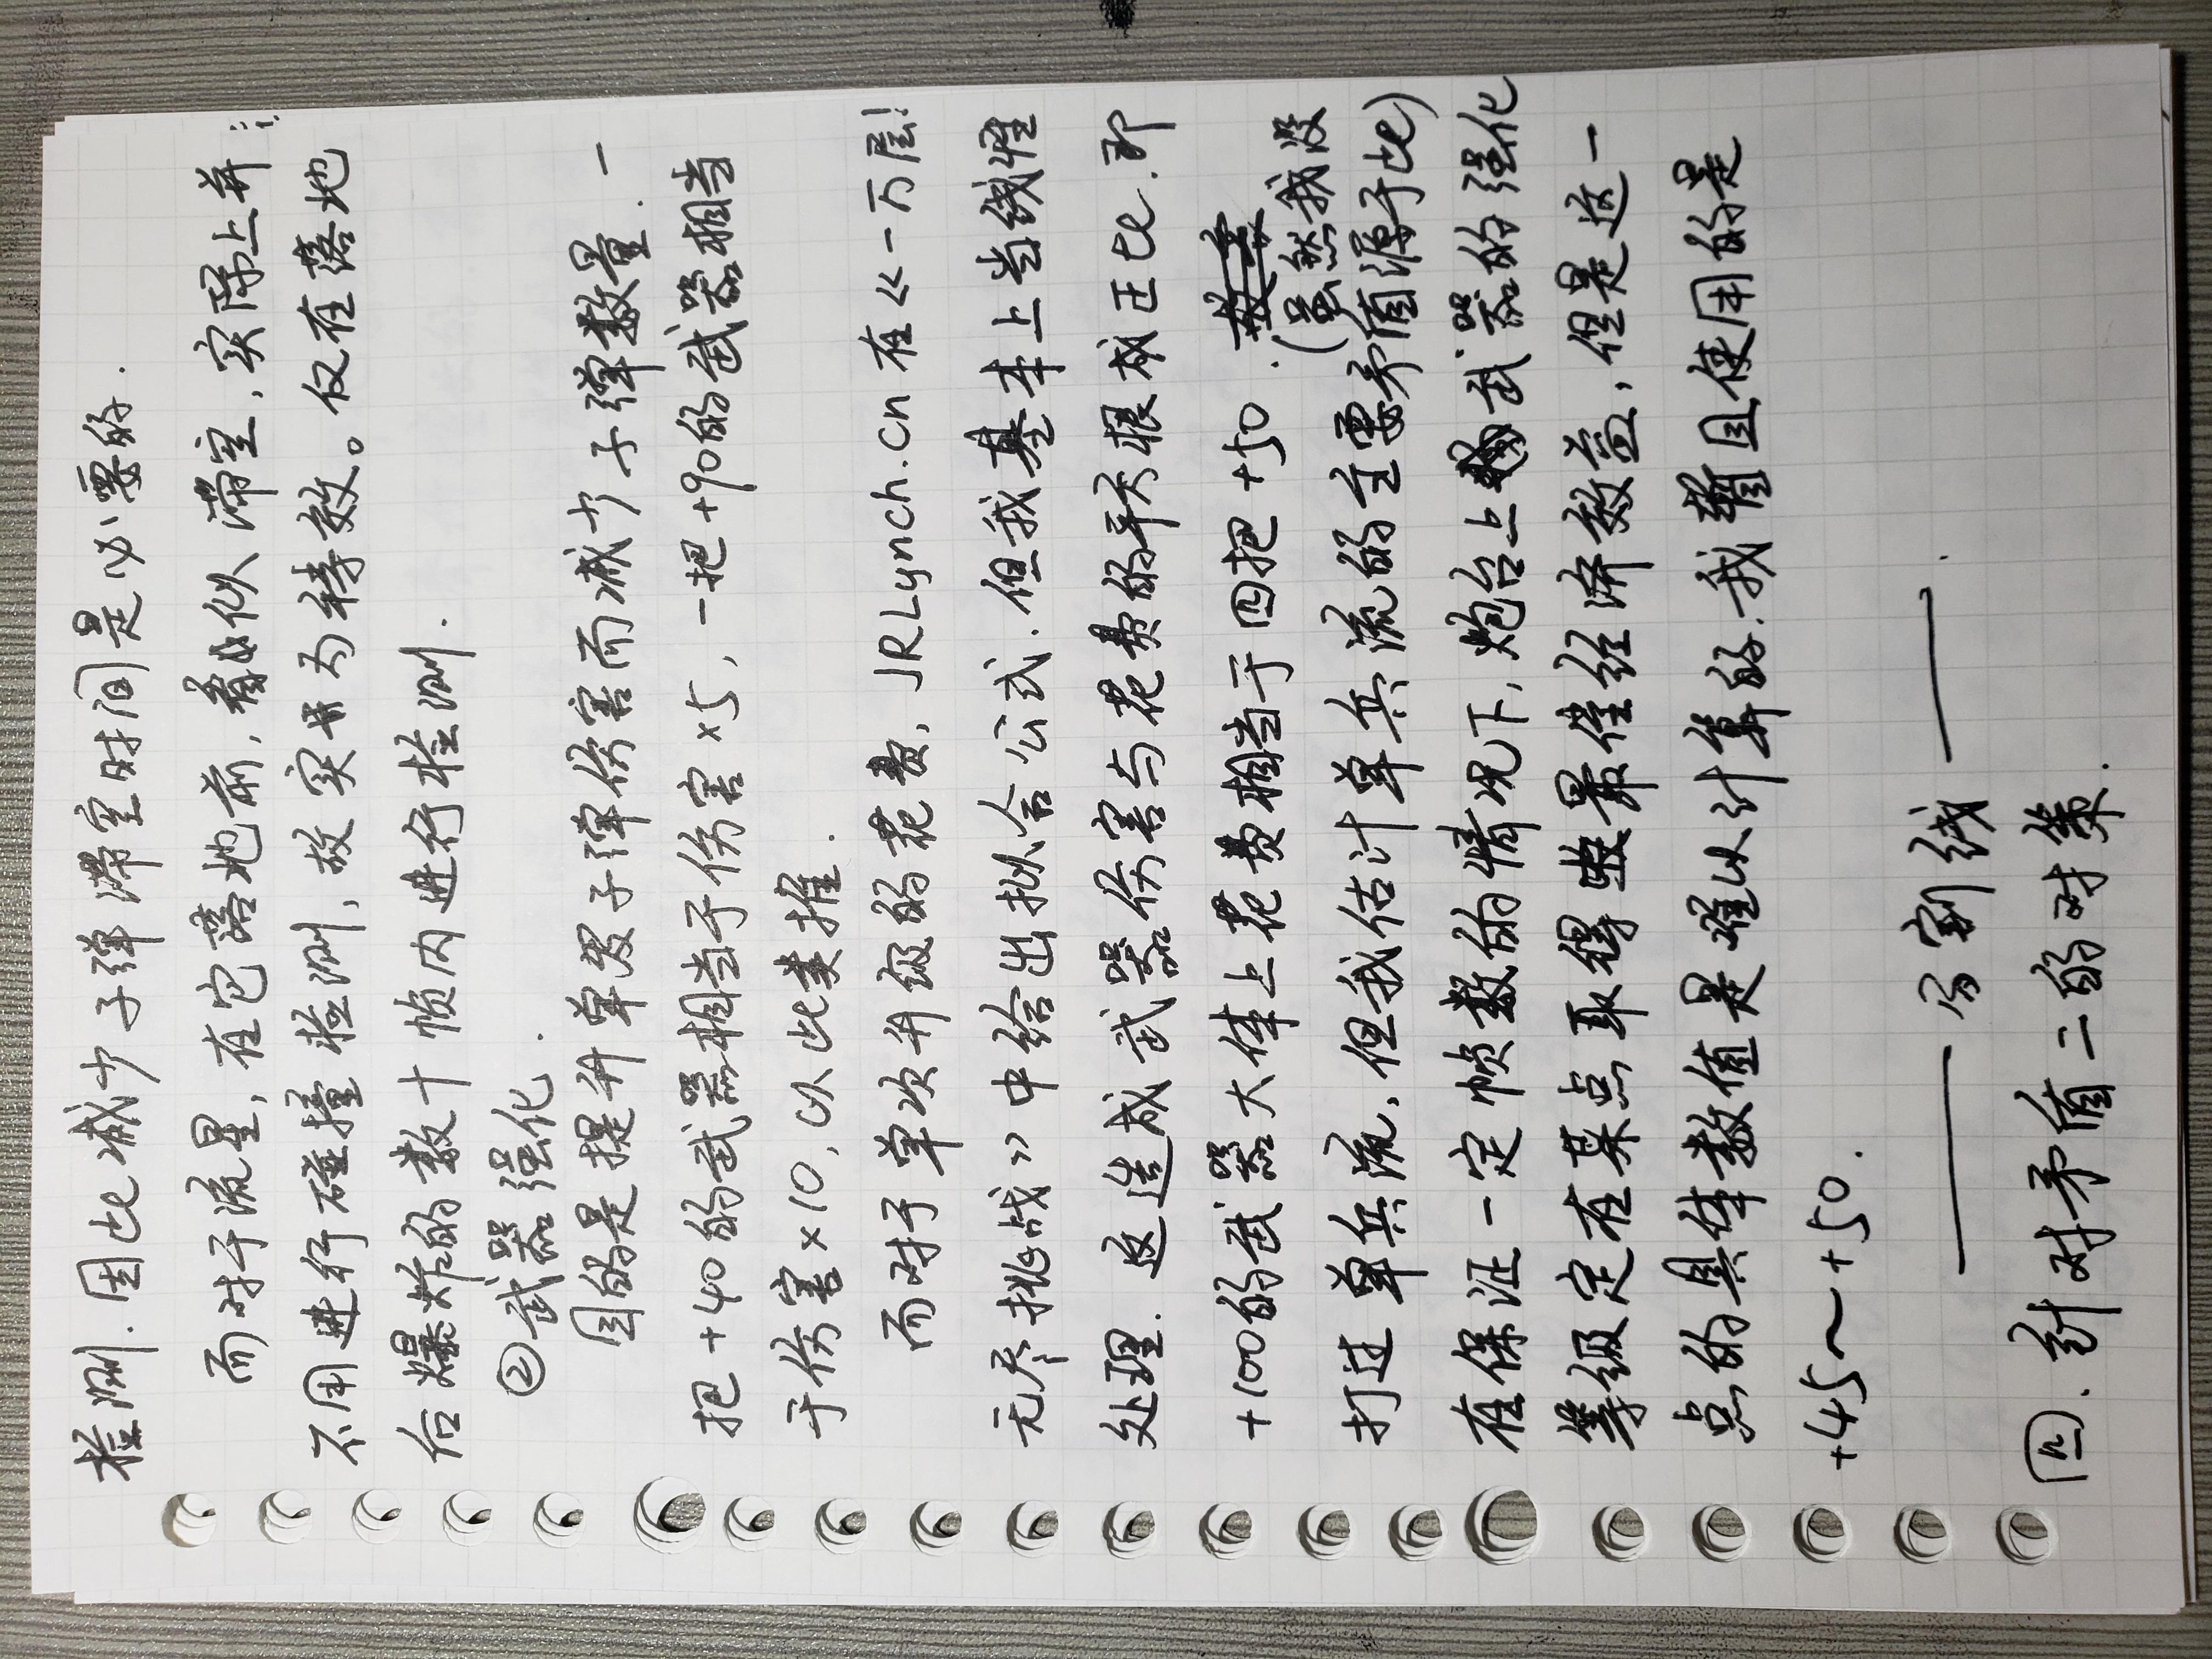 检测.因此减少子弹滞空时间是必要的.
而对于流星,在它落地前,看似滞空,实际上并
不用进行碰撞检测,故实为特效。仅在落地
后爆炸的数十帧内进行检测.
②武器强化.
目的是提升单发子弹伤害而减少子弹数量.一
把+40的武器相当于伤害×5,一把+90的武器相当
于伤害×10,以此类推.
而对于单次升级的花费,JRLynch.cn在《一万层!
无尽挑战》中给出拟合公式.但我基本上当线性
处理.这造成武器伤害与花费的平方根成正比.即
+100的武器大体上花费相当于四把+50.(虽然我没
打过单兵流,但我估计单兵流的主要矛盾源于此)
在保证一定帧数的情况下,炮台上武器的强化
等级定在某点取得最佳经济效益,但是这一
点的具体数值是难以计算的.我暂且使用的是
+45～+50.
——分割线——.
四.针对矛盾二的对策.